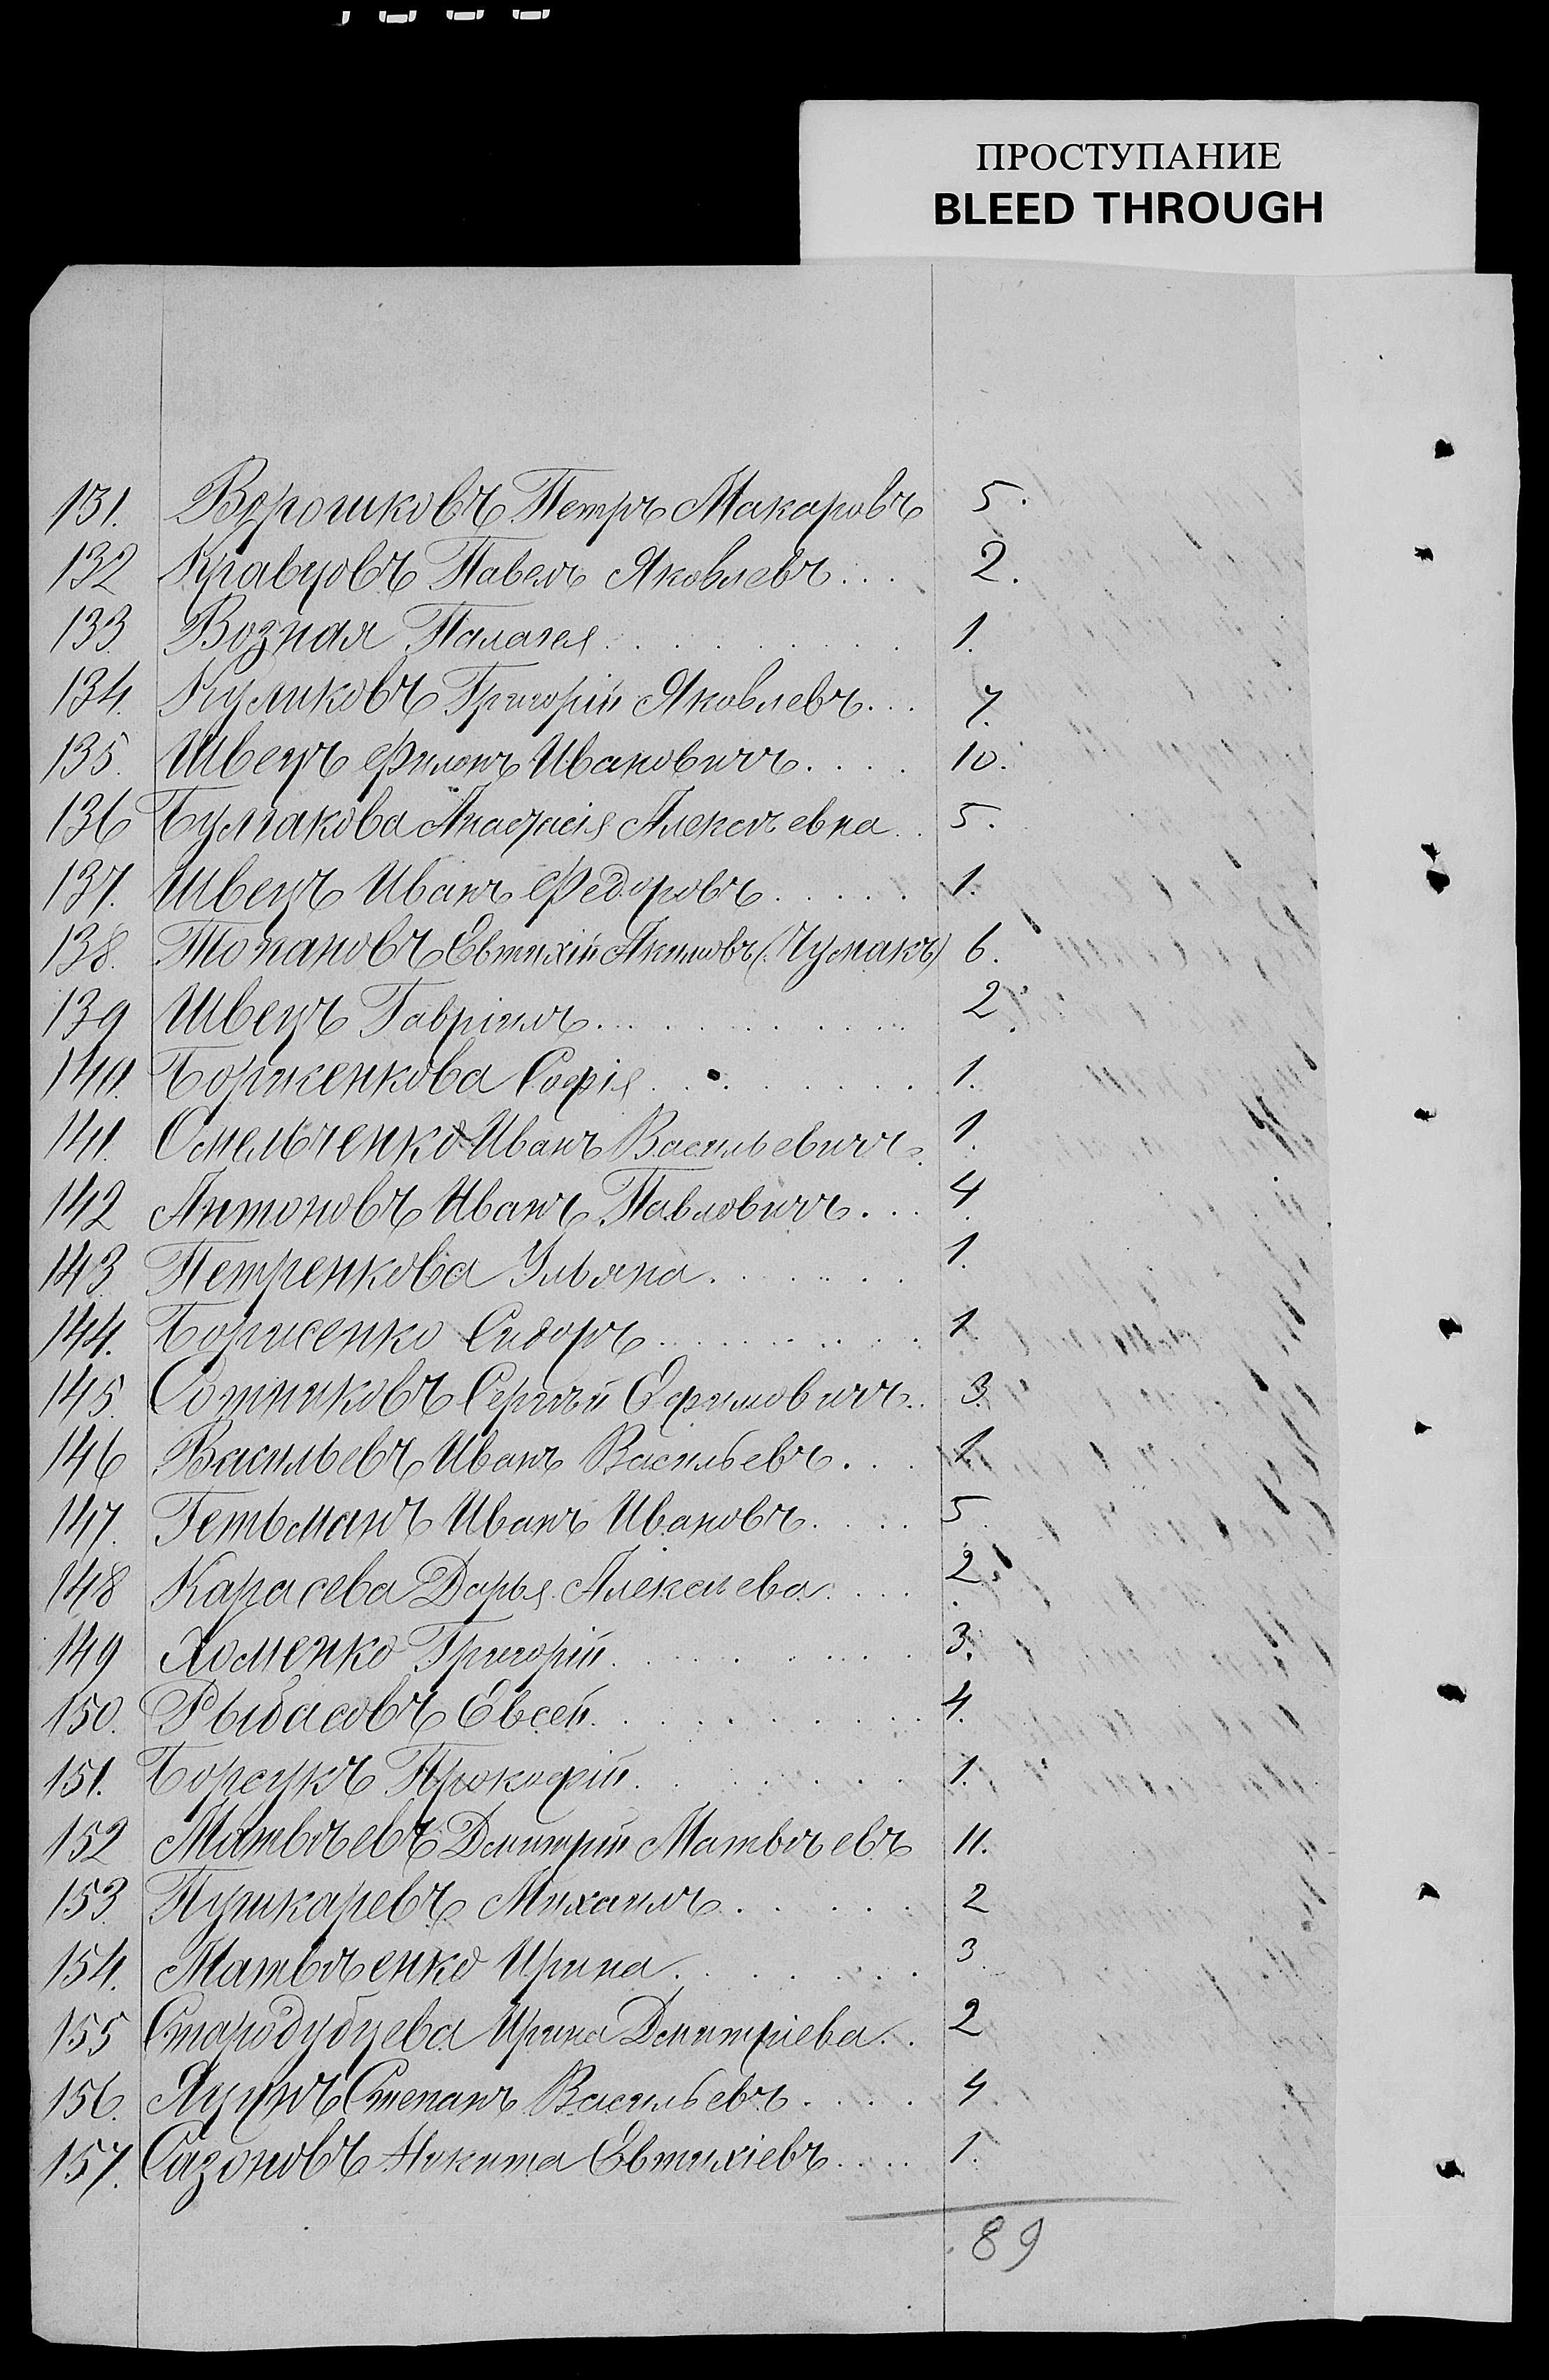 ПРОСТУПАНИЕ
BLEED THROUGH
131. Ворошковъ Петръ Макаровъ 5.
132 Кравцовъ Павелъ Яковлевъ... 2.
133. Возная Палагея......... 1.
134. Куликовъ Григорій Яковлевъ... 7.
135. Швецъ Филонъ Ивановичъ.... 10.
136 Булгакова Анастасія Алексѣевна.. 5.
137. Швецъ Иванъ Федоровъ..... 1.
138. Топановъ Евтихій Акимовъ (Чумакъ) 6.
139 Швецъ Гавріилъ......... 2.
140. Борисенкова Софія......... 1.
141. Омельченко Иванъ Васильевичъ. 1.
142 Антоновъ Иванъ Павловичъ... 4.
143. Петренкова Ульяна....... 1.
144. Борисенко Сидоръ......... 1
145. Сотниковъ Сергѣй Ефимовичъ.. 3.
146 Васильевъ Иванъ Васильевъ... 1.
147. Гетьманъ Иванъ Ивановъ.... 5.
148 Карасева Дарья Алексѣева.... 2.
149 Хоменко Григорій......... 3.
150. Рыбасовъ Евсей.......... 4.
151. Борсукъ Прокофій........ 1.
152 Матвѣевъ Дмитрій Матвѣевъ 11.
153. Пушкаревъ Михаилъ...... 2
154. Матвѣенко Ирина....... 3.
155 Стародубцева Ирина Дмитріева.. 2
156. Яцунъ Степанъ Васильевъ.... 4
157. Сазоновъ Никита Евтихіевъ.... 1.
89